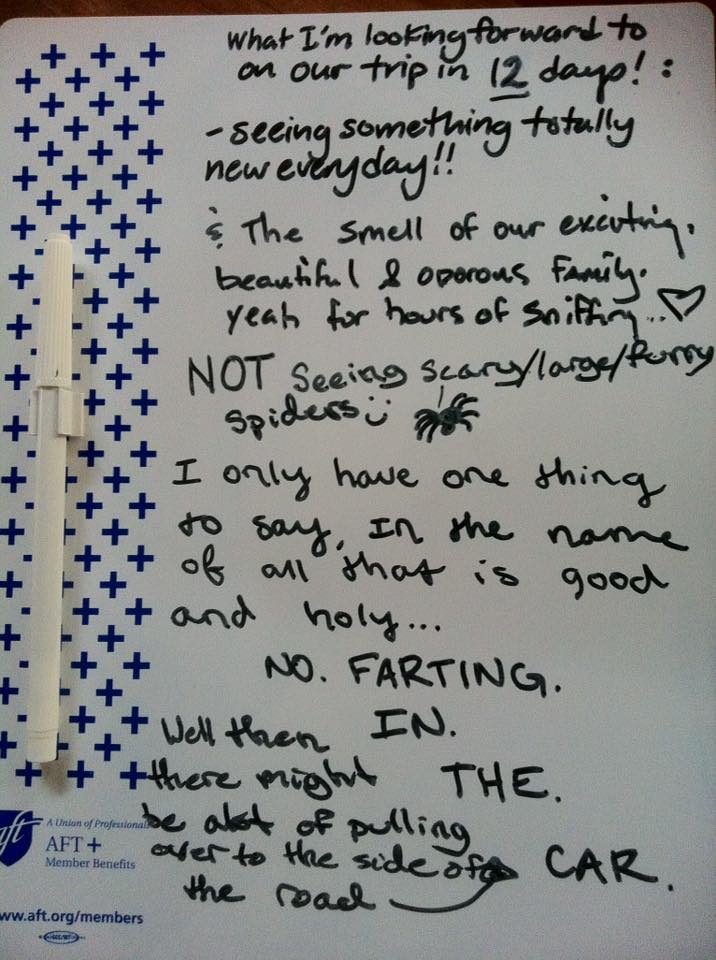 What I'm looking forward to
on our trip in 12 days! :
- seeing something totally
new everyday!!
& The smell of our exciting,
beautiful & odorous family.
yeah for hours of sniffing...
NOT seeing scary/large/furry
spiders
I only have one thing
to say, In the name
of all that is good
and holy...
NO. FARTING.
IN.
THE.
CAR.
Well then
there might
be alot of pulling
over to the side of
the road
aft
A Union of Professionals
AFT +
Member Benefits
www.aft.org/members